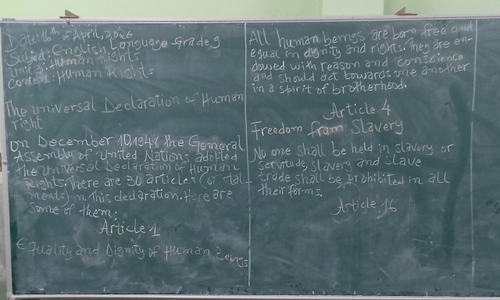 Date: 10th April, 2026
Subject: English Language Grade 9
unit 2: Human Rights
content: Human Rights
The Universal Declaration of Human
right
On December 10, 1948 the General
Assembly of United Nations adopted
the Universal Declaration of Human
Rights. There are 30 articles (or
ments) in this declaration. Here are
some of them:
Article 1
Equality and Dignity of Human Beings
All human beings are born free and
equal in dignity and rights. They are en-
dowed with reason and conscience
and should act towards one another
in a spirit of brotherhood.
Article 4
Freedom from Slavery
No one shall be held in slavery or
servitude, slavery and slave
trade shall be prohibited in all
their forms.
Article 16